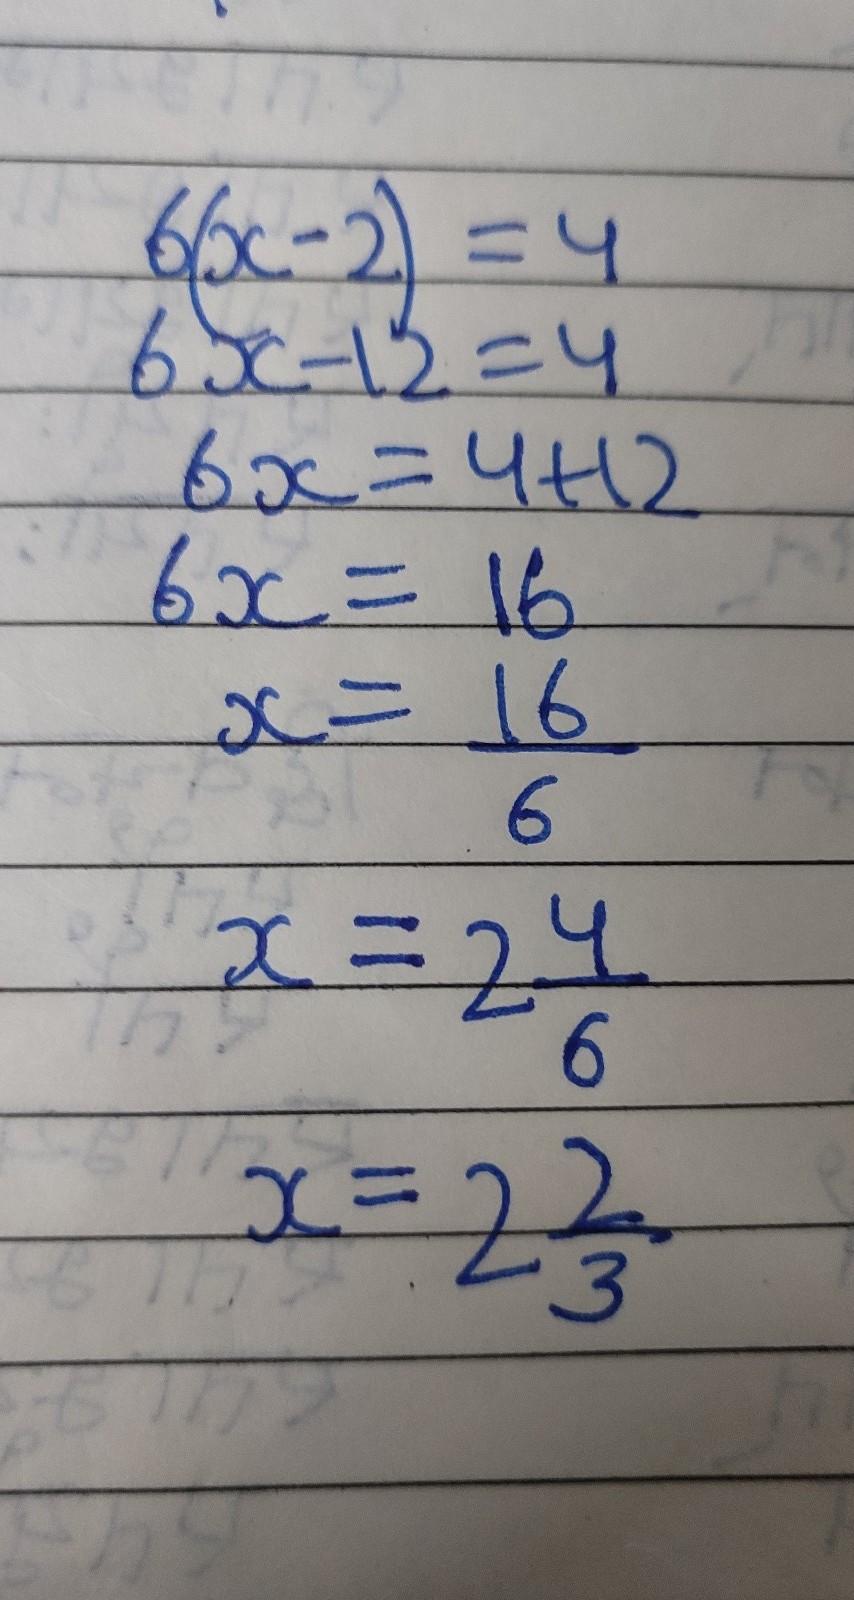 6(x-2) = 4
6x-12 = 4
6x = 4+12
6x = 16
x = 16/6
x = 2 4/6
x = 2 2/3